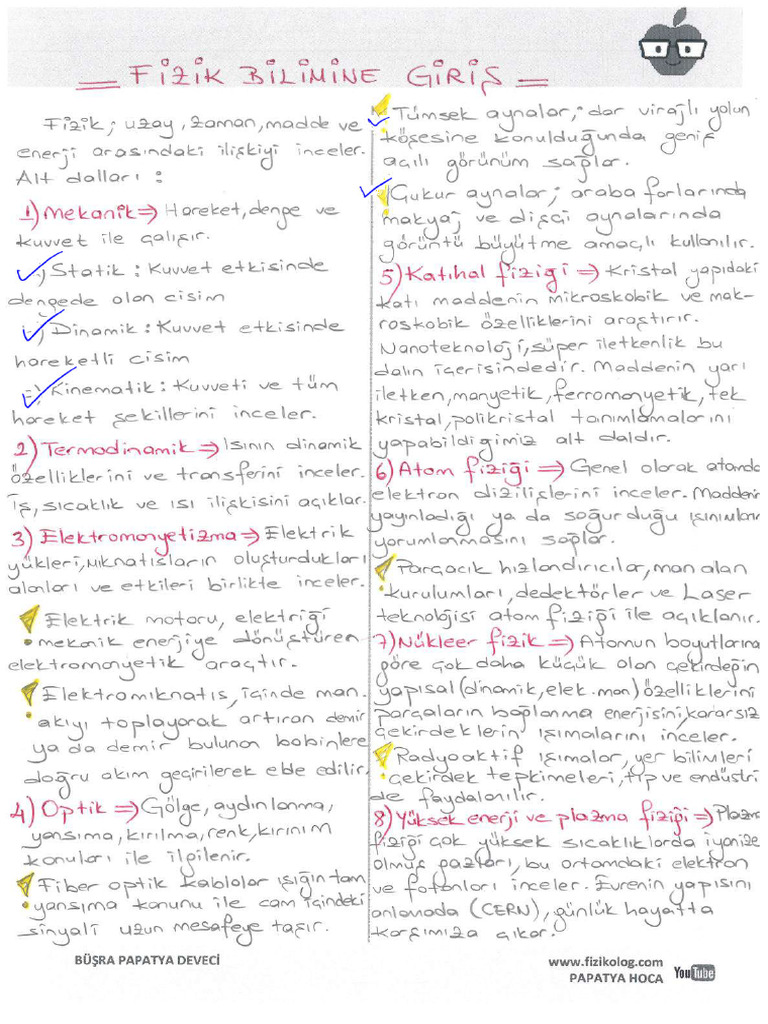 = FİZİK BİLİMİNE GİRİŞ =
Fizik; uzay, zaman, madde ve
enerji arasındaki ilişkiyi inceler.
Alt dalları :
1) Mekanik ⇒ Hareket, denge ve
kuvvet ile çalışır.
Statik : Kuvvet etkisinde
dengede olan cisim
Dinamik : Kuvvet etkisinde
hareketli cisim
Kinematik : Kuvveti ve tüm
hareket şekillerini inceler.
2) Termodinamik ⇒ Isının dinamik
özelliklerini ve transferini inceler.
İş, sıcaklık ve ısı ilişkisini açıklar.
3) Elektromanyetizma ⇒ Elektrik
yükleri, mıknatısların oluşturdukları
alanları ve etkileri birlikte inceler.
Elektrik motoru, elektriği
mekanik enerjiye dönüştüren
elektromanyetik araçtır.
Elektromıknatıs, içinde man.
akıyı toplayarak artıran demir
ya da demir bulunan bobinlere
doğru akım geçirilerek elde edilir.
4) Optik ⇒ Gölge, aydınlanma,
yansıma, kırılma, renk, kırınım
konuları ile ilgilenir.
Fiber optik kablolar ışığın tam
yansıma konunu ile cam içindeki
sinyali uzun mesafeye taşır.
Tümsek aynalar; dar virajlı yolun
köşesine konulduğunda geniş
açılı görünüm sağlar.
Çukur aynalar; araba farlarında
makyaj ve dişçi aynalarında
görüntü büyütme amaçlı kullanılır.
5) Katıhal fiziği ⇒ Kristal yapıdaki
katı maddenin mikroskobik ve mak-
roskobik özelliklerini araştırır.
Nanoteknoloji, süper iletkenlik bu
dalın içerisindedir. Maddenin yarı
iletken, manyetik, ferromanyetik, tek
kristal, polikristal tanımlamalarını
yapabildiğimiz alt daldır.
6) Atom fiziği ⇒ Genel olarak atomda
elektron dizilişlerini inceler. Maddenin
yayınladığı ya da soğurduğu ışınımların
yorumlanmasını sağlar.
Parçacık hızlandırıcılar, man alan
kurulumları, dedektörler ve Laser
teknolojisi atom fiziği ile açıklanır.
7) Nükleer fizik ⇒ Atomun boyutlarına
göre çok daha küçük olan çekirdeğin
yapısal (dinamik, elek. man) özelliklerini
parçaların bağlanma enerjisini, kararsız
çekirdeklerin ışımalarını inceler.
Radyoaktif ışımalar, yer bilimleri
çekirdek tepkimeleri, tıp ve endüstri
de faydalanılır.
8) Yüksek enerji ve plazma fiziği ⇒ Plazma
fiziği çok yüksek sıcaklıklarda iyonize
olmuş gazları, bu ortamdaki elektron
ve fotonları inceler. Evrenin yapısını
anlamada (CERN), günlük hayatta
karşımıza çıkar.
BÜŞRA PAPATYA DEVECİ
www.fizikolog.com
PAPATYA HOCA YouTube